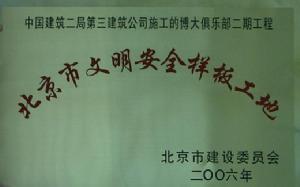 中国建筑二局第三建筑公司施工的博大俱乐部二期工程
北京市文明安全样板工地
北京市建设委员会
二〇〇六年